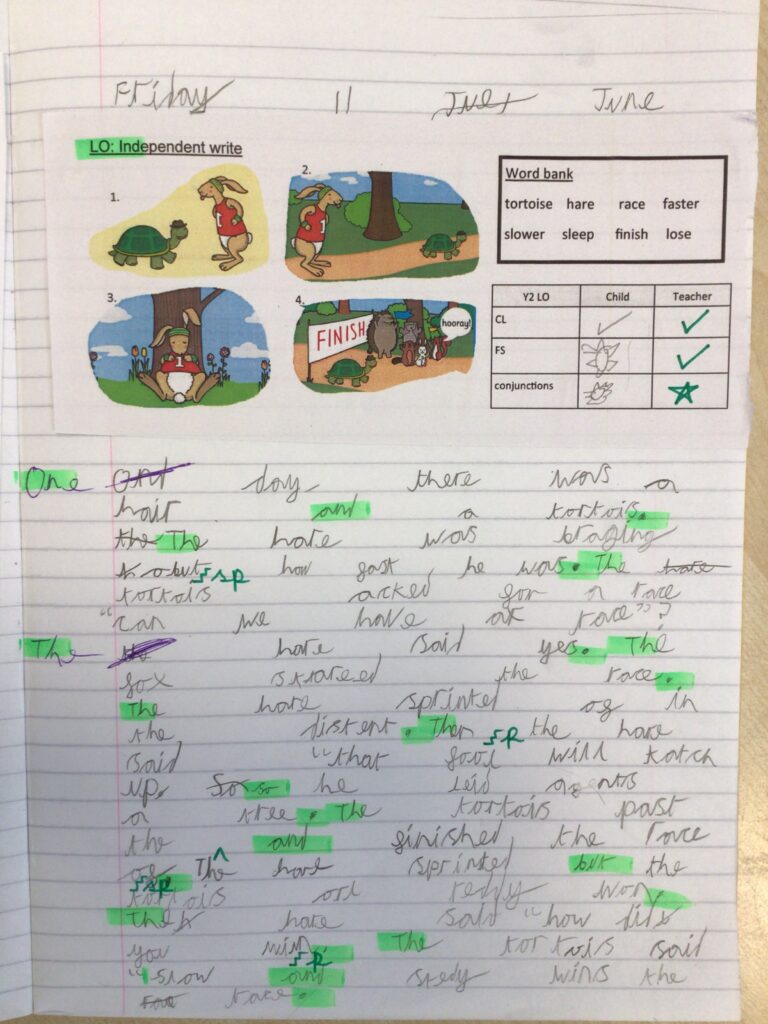 Friday 11 July June
LO: Independent write
1.
2.
3.
4.
FINISH
hooray!
Word bank
tortoise hare race faster
slower sleep finish lose
Y2 LO Child Teacher
CL
FS
conjunctions
One day there was a
hair and a tortois.
the The hare was braging
how fast he was. The hare
sp
tortois acked for a race
"can we have ar race"?
The hare said yes. The
fox stareed the race.
The hare sprinted of in
the distent. Then the hare
sp
said "that fool will katch
up. So so he leid agents
a tree. The tortois past
the and finished the race
The hare sprinted but the
sp
tortois ord redy won.
The hare said "how did
you win. The tortois said
sp
"slow and stedy wins the
race.